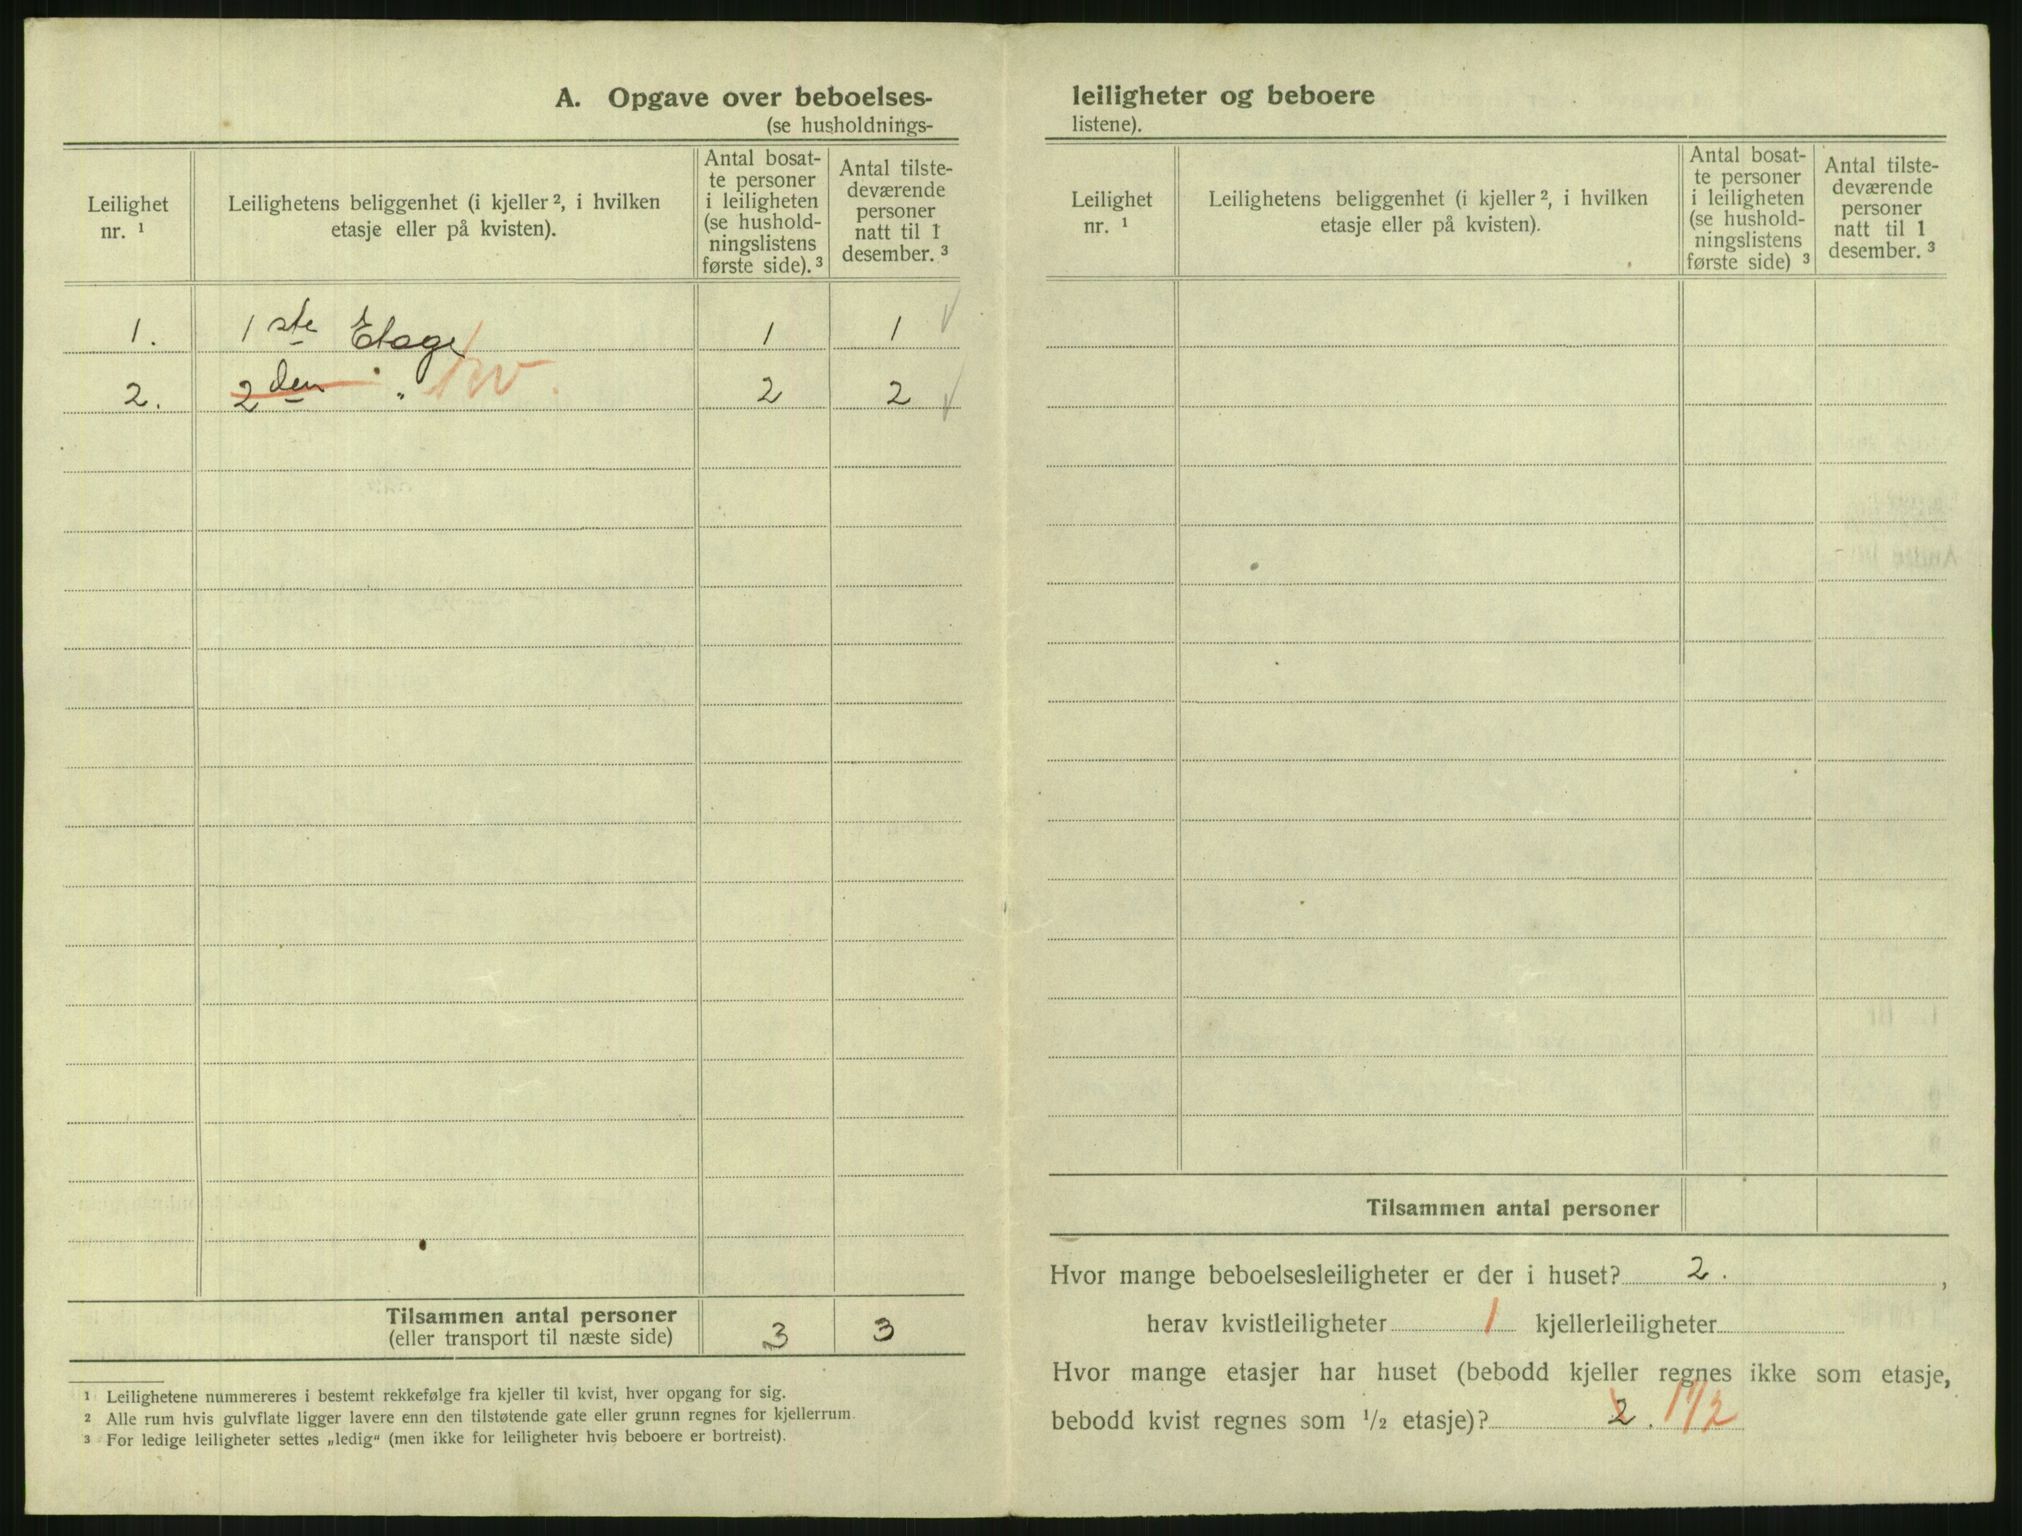 A. Opgave over beboelses-
(se husholdnings-
Leilighet
nr. ¹
Leilighetens beliggenhet (i kjeller ², i hvilken
etasje eller på kvisten).
Antal bosat-
te personer
i leiligheten
(se hushold-
ningslistens
første side). ³
Antal tilste-
deværende
personer
natt til 1
desember. ³
1. 1 ste Etage 1 1
2. 2 den " kv. 2 2
Tilsammen antal personer
(eller transport til næste side)
3 3
¹ Leilighetene nummereres i bestemt rekkefølge fra kjeller til kvist, hver opgang for sig.
² Alle rum hvis gulvflate ligger lavere enn den tilstøtende gate eller grunn regnes for kjellerrum.
³ For ledige leiligheter settes „ledig“ (men ikke for leiligheter hvis beboere er bortreist).
leiligheter og beboere
listene).
Leilighet
nr. ¹
Leilighetens beliggenhet (i kjeller ², i hvilken
etasje eller på kvisten).
Antal bosat-
te personer
i leiligheten
(se hushold-
ningslistens
første side) ³
Antal tilste-
deværende
personer
natt til 1
desember. ³
Tilsammen antal personer
Hvor mange beboelsesleiligheter er der i huset? 2. ,
herav kvistleiligheter 1 kjellerleiligheter
Hvor mange etasjer har huset (bebodd kjeller regnes ikke som etasje,
bebodd kvist regnes som 1/2 etasje)? 2. 1 1/2